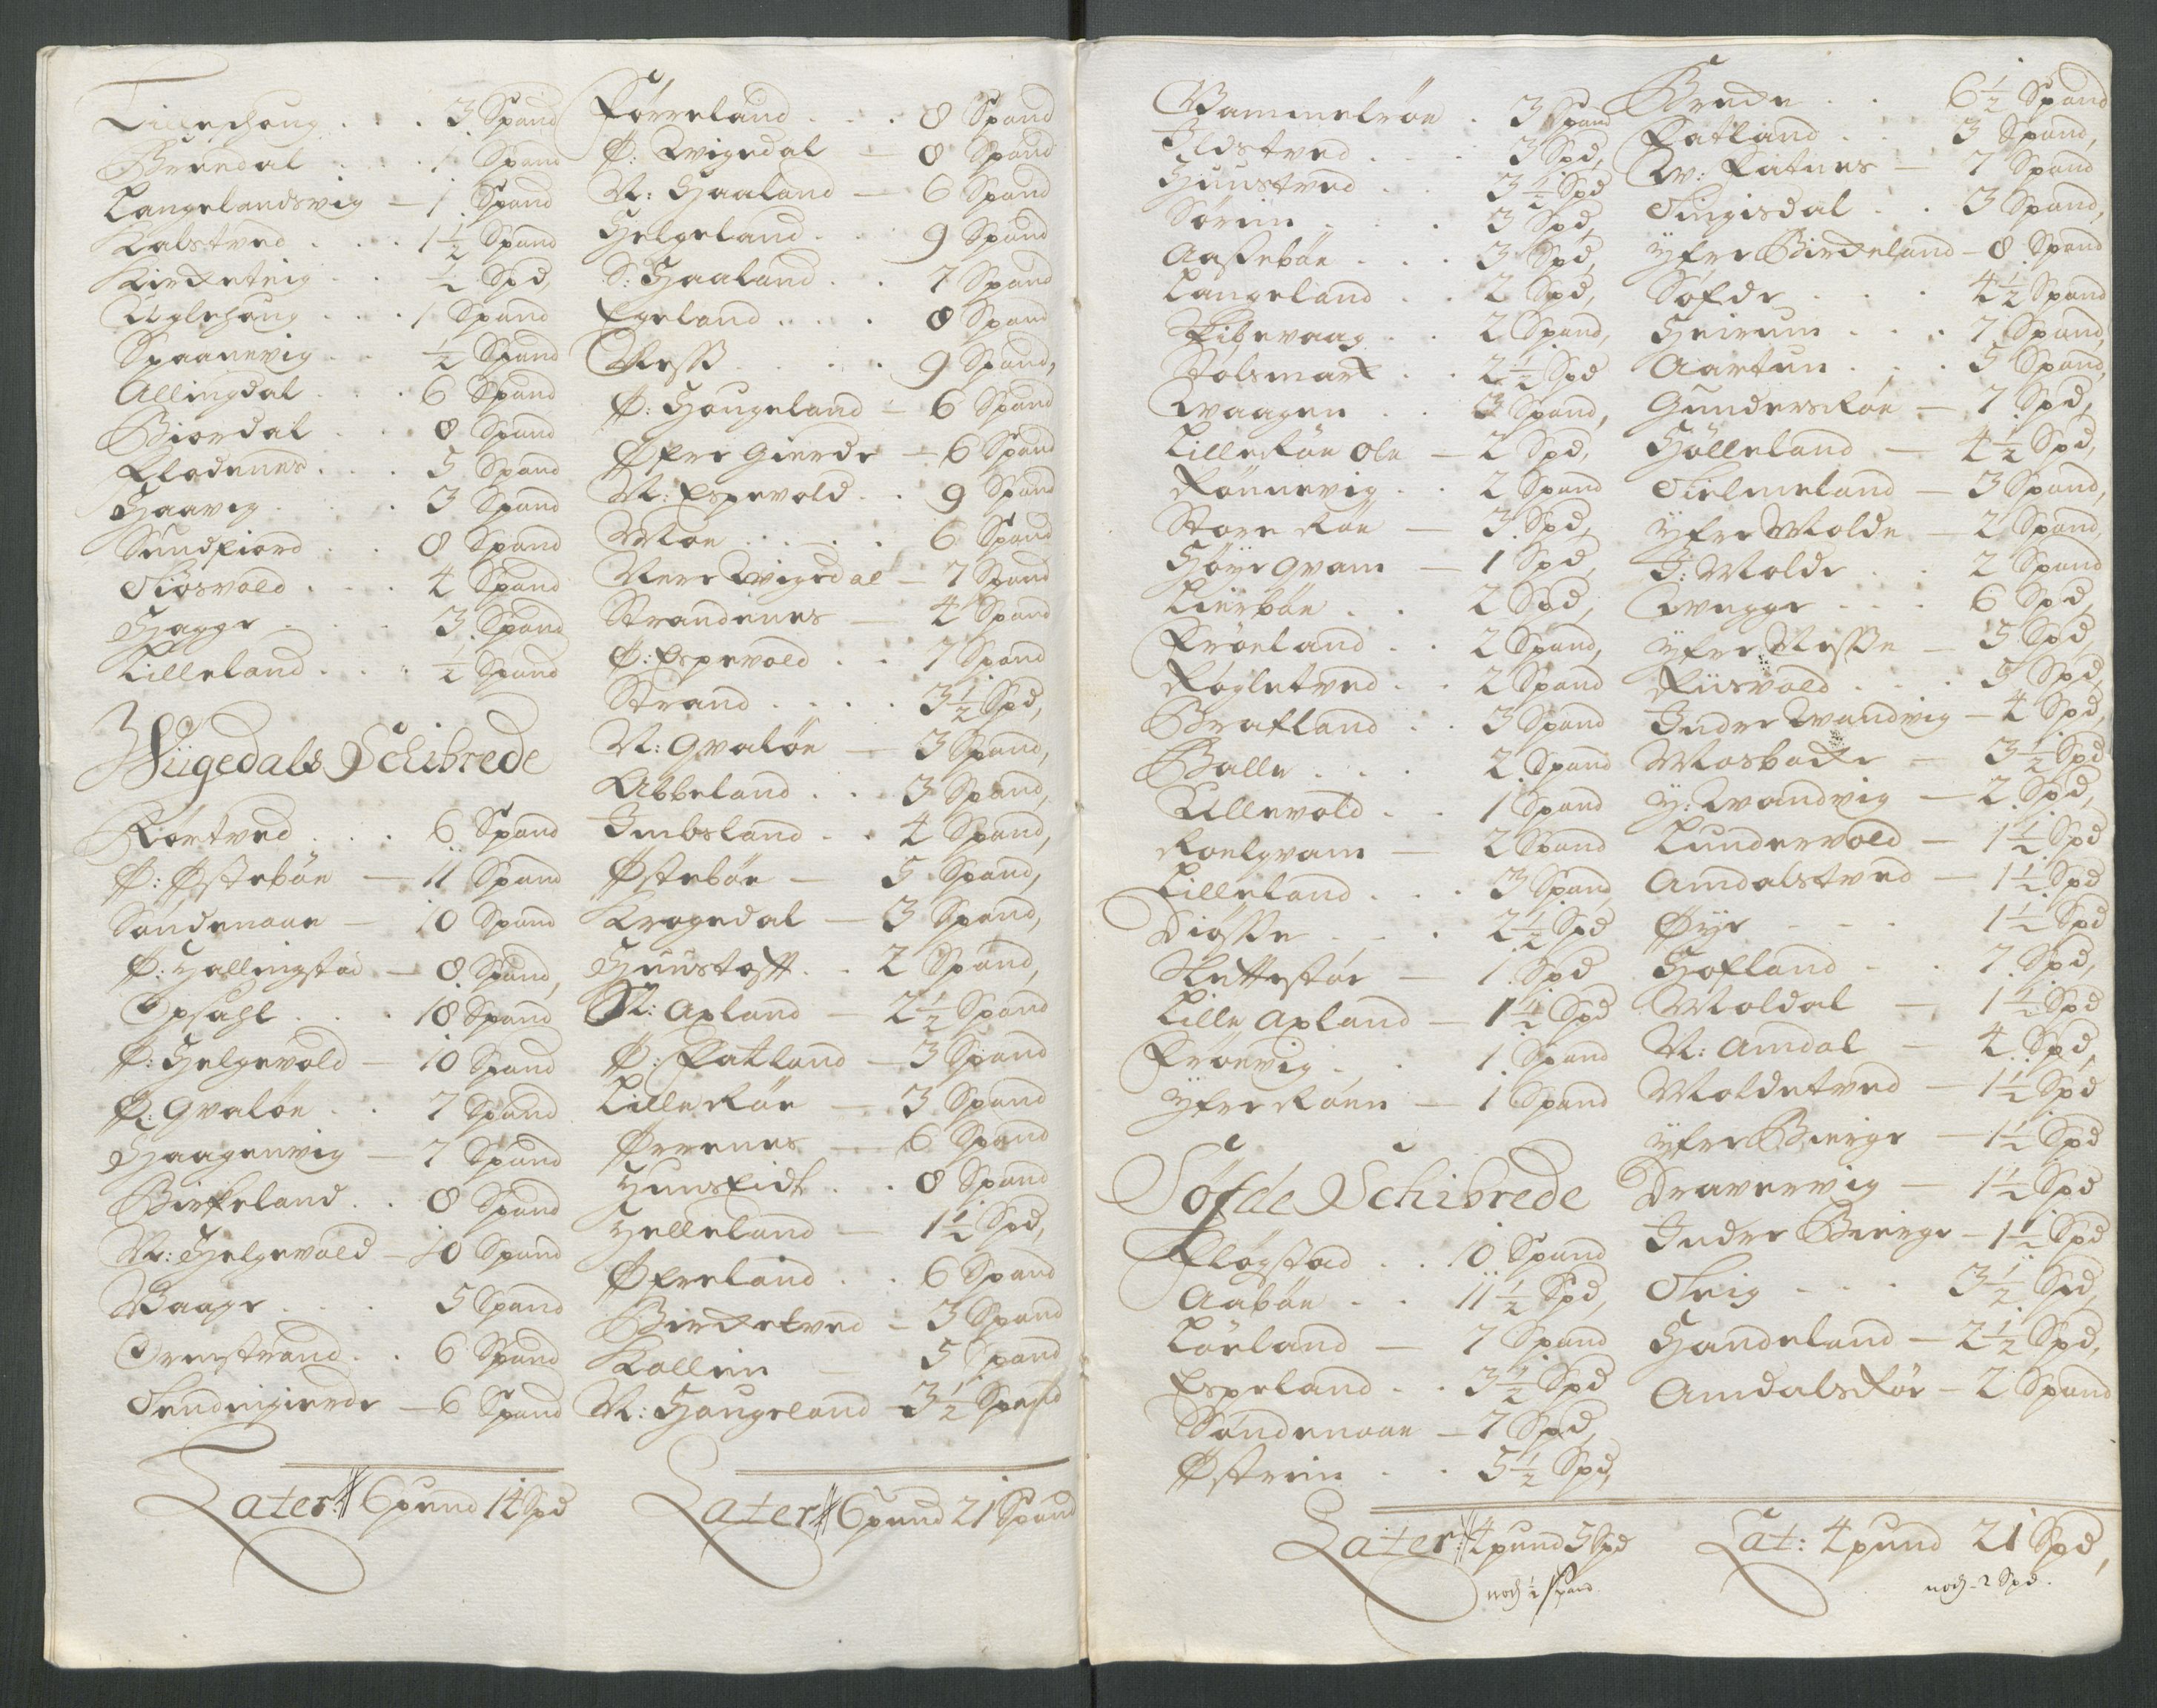 Lillehoug . . . 3 Spand
Bruedal . . . 1 Spand
Langelandsvig — 1 Spand
Kalstved . . . 1 1/2 Spand
Kirketeig . . 1/2 Spd,
Uglehoug . . . 1 Spand
Spaanevig . . . 1/2 Spand
Allingdal . . . 6 Spand
Biordal . . 8 Spand
Flodenes . . . 5 Spand
Haavig . . . 3 Spand
Sundfiord . . 8 Spand
Tiosvold . . . 4 Spand
Hagge . . . 3 Spand
Lilleland . . . 1/2 Spand
Wiigedals Schibrede
Rørtved . . . 6 Spand
Ø: Østebøe — 11 Spand
Sandenaae — 10 Spand
Ø: Hallingstad — 8 Spand,
Opsahl . . . 18 Spand
Ø: Helgevold — 10 Spand
Ø: Qvaløe . . 7 Spand
Haagenvig — 7 Spand
Birkeland . . 8 Spand
N: Helgevold — 10 Spand
Vaage . . . 5 Spand
Ormstrand . . 6 Spand
Tendengierde — 6 Spand
Later: 6 pund 14 Spd
Førreland . . . 8 Spand
Ø: Wigedal — 8 Spand
N: Haaland — 6 Spand
Helgeland . . 9 Spand
S: Haaland . . 7 Spand
Egeland . . . . 8 Spand
Ness . . . . 9 Spand,
Ø: Hougeland — 6 Spand
Øfre Gierde — 6 Spand
N: Espevold . . 9 Spand
Moe . . . . 6 Spand
Nere Wigedal — 7 Spand
Strandenes — 4 Spand
Ø: Espevold . . 7 Spand
Strand . . . . 3 1/2 Spd,
N: Qvaløe — 3 Spand,
Abbeland . . 3 Spand,
Imbsland . . 4 Spand,
Østebøe — 5 Spand,
Krogedal — 3 Spand,
Huustoft . . 2 Spand,
N: Axland — 2 1/2 Spand
Ø: Fatland — 3 Spand
Lille Røe — 3 Spand
Ørrenes — 6 Spand
Hunsfidt . . 8 Spand
Helleland — 1 1/2 Spd,
Øfreland . . 6 Spand
Birketved — 3 Spand
Kolleim — 5 Spand
N: Hougeland — 3 1/2 Spand
Later: 6 pund 21 Spand
Vammelrøe . 3 Spand
Ildstved . . . 3 Spd,
Huustved . . 3 1/2 Spd
Sørim . . . . 3 Spd,
Aassebøe . . . 3 Spd,
Langeland . . 2 Spd,
Pibevaag . . 2 Spand,
Stolsmark . . 2 1/2 Spd
Waagen . . 3 Spand,
Lille Røe Ole — 2 Spd,
Rønnevig . . 2 Spand
Store Røe — 3 Spd,
Høye Qvam — 1 Spd,
Lierbøe . . 2 Spd,
Frøeland . . 2 Spand,
Røgletved . . 2 Spand
Bratland . . 3 Spand
Balle . . . 2 Spand
Ullevold . . 1 Spand
Roelqvam — 2 Spand
Lilleland . . . 3 Spand,
Diøsse . . . 2 1/2 Spd
Slettestøe — 1 Spd
Lille Axland — 1 1/2 Spd
Frøevig . . 1 Spand
Yfre Røen — 1 Spand
Søfde Schibrede
Fløgstad . . 10 Spand
Aabøe . . 11 1/2 Spd,
Løeland — 7 Spand
Espeland . . 3 1/2 Spd
Søndenaae — 7 Spd,
Østreim . . 5 1/2 Spd,
Later: 4 pund 5 Spd
noch 1/2 Spand
Brekke . . 6 1/2 Spand
Fatland . . 3 Spand,
W: Fatnes — 7 Spand
Tengisdal . . 3 Spand,
Yfre Birkeland — 8 Spand
Søfde . . . 4 1/2 Spand
Heirum . . . 7 Spand,
Aartun . . . 5 Spand,
Gunderskøe — 7 Spd,
Hølleland — 4 1/2 Spd,
Tielmeland — 3 Spand,
Yfre Molde — 2 Spand,
I: Molde . . 2 Spand
Wegge . . . 6 Spd,
Yfre Nesse — 5 Spd,
Riisvold . . . 5 Spd,
Indre Wandvig — 4 Spd,
Mosbacke — 3 1/2 Spd
Y: Wandvig — 2 Spd,
Lundervold — 1 1/2 Spd
Amdalstved — 1 1/2 Spd
Øye - - - 1 1/2 Spd
Hofland - . 7 Spd,
Moldal — 1 1/2 Spd
N: Amdal — 4 Spd,
Moldetved — 1 1/2 Spd
Yfre Bierge — 1 1/2 Spd
Dravervig — 1 1/2 Spd
Indre Bierge — 1 1/2 Spd
Teig - - - 3 1/2 Spd,
Handeland — 2 1/2 Spd,
Amdalskøe — 2 Spand
Lat: 4 pund 21 Spd,
noch - 2 Spd.